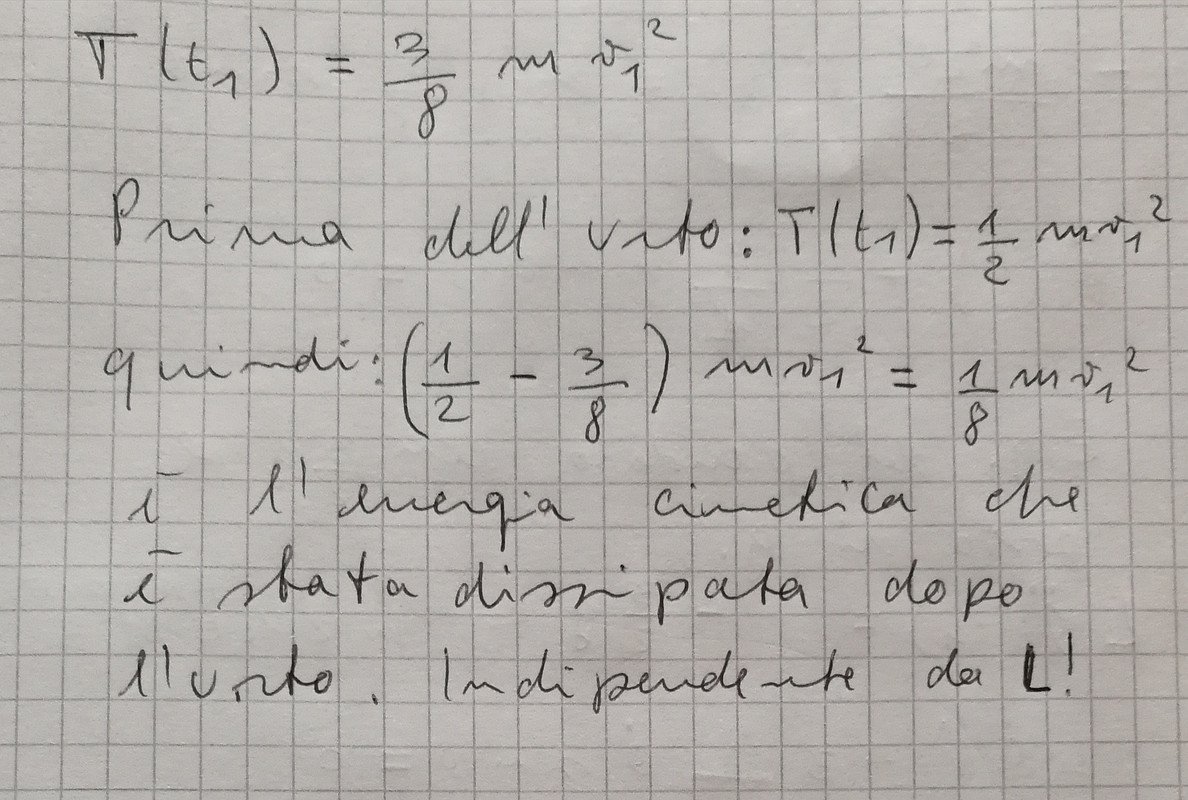 T(t₁) = 3/8 m v₁²
Prima dell'urto: T(t₁) = 1/2 m v₁²
quindi: (1/2 - 3/8) m v₁² = 1/8 m v₁²
è l'energia cinetica che
è stata dissipata dopo
l'urto. Indipendente da L!